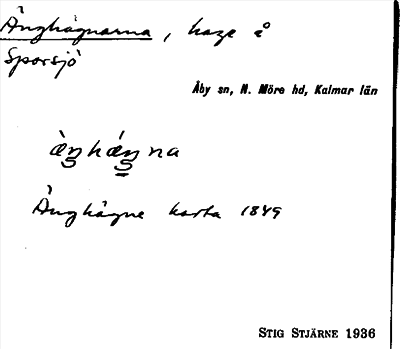 Änghägnarna, hage å
Sporsjö
Åby sn, N. Möre hd, Kalmar län
æ̀ŋhæ̀ŋna
Änghägne karta 1849
STIG STJÄRNE 1936